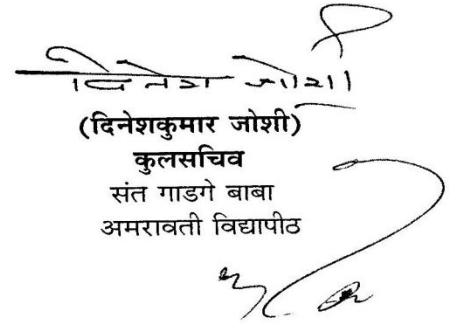 दिनेश जोशी
(दिनेशकुमार जोशी)
कुलसचिव
संत गाडगे बाबा
अमरावती विद्यापीठ